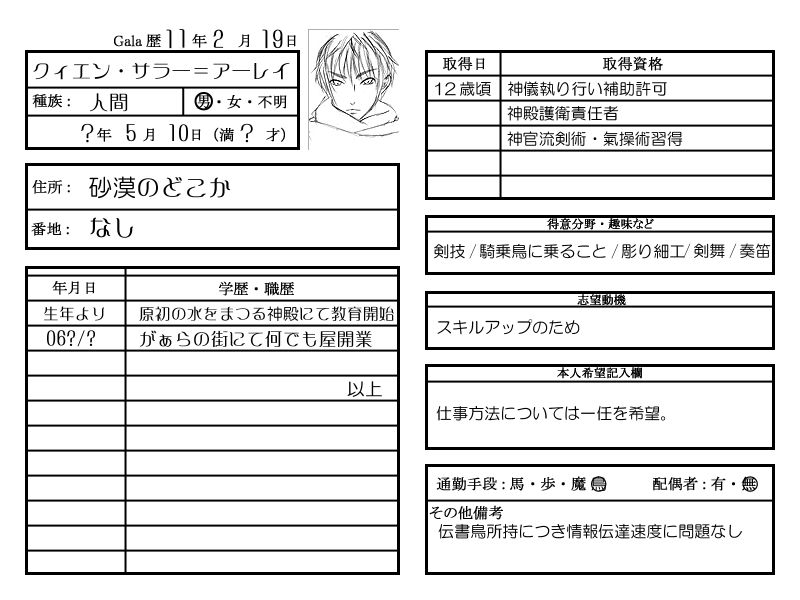 Gala 歴 11 年 2 月 19 日
クィエン・サラー＝アーレイ
種族： 人間
男・女・不明
？年 5 月 10 日（満 ？ 才）
住所： 砂漠のどこか
番地： なし
年月日 学歴・職歴
生年より 原初の水をまつる神殿にて教育開始
06?/? がぁらの街にて何でも屋開業
以上
取得日 取得資格
12歳頃 神儀執り行い補助許可
神殿護衛責任者
神官流剣術・氣操術習得
得意分野・趣味など
剣技 / 騎乗鳥に乗ること / 彫り細工/ 剣舞 / 奏笛
志望動機
スキルアップのため
本人希望記入欄
仕事方法については一任を希望。
通勤手段：馬・歩・魔 鳥 配偶者：有・無
その他備考
伝書鳥所持につき情報伝達速度に問題なし